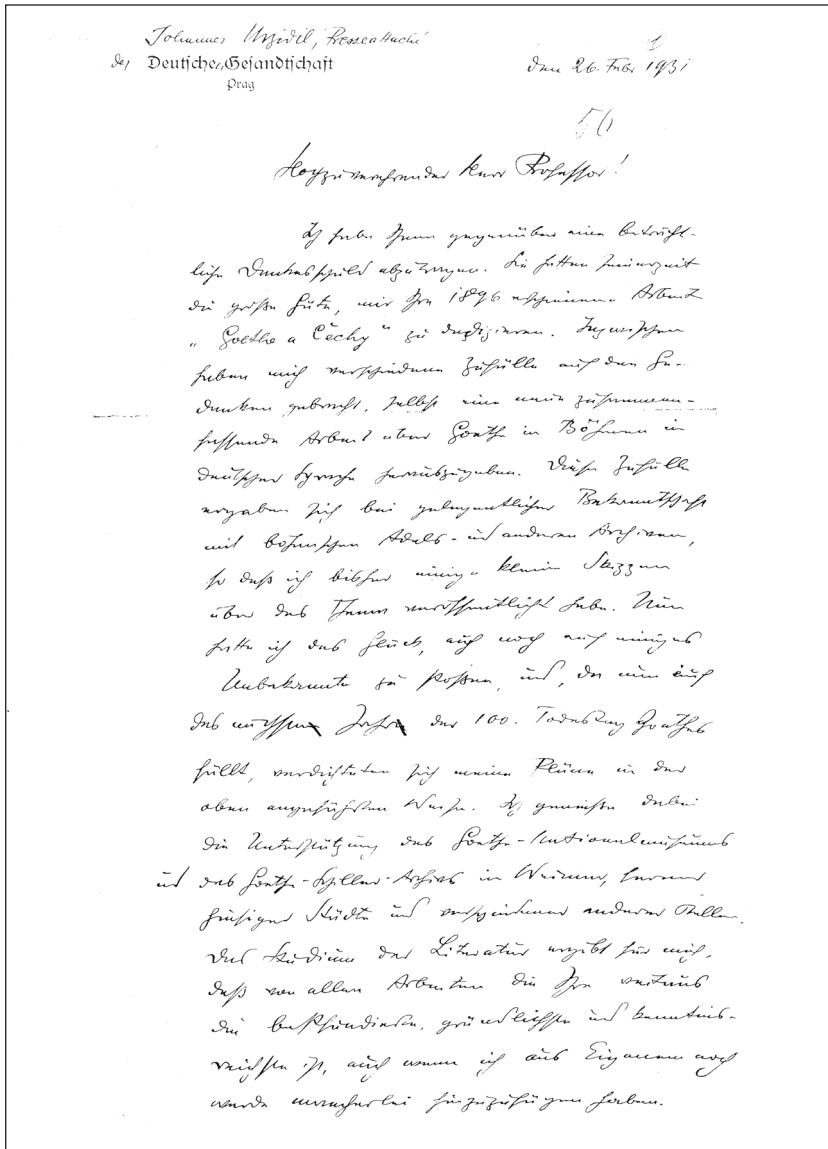 Johannes Urzidil, Presseattaché
der Deutschen Gesandtschaft
Prag
den 26. Febr 1931
50
Hochzuverehrender Herr Professor!
Ich habe Ihnen gegenüber eine beträcht-
liche Dankesschuld abzutragen. Sie hatten seinerzeit
die große Güte, mir Ihre 1896 erschienene Arbeit
„Goethe a Čechy" zu dedizieren. Inzwischen
haben mich verschiedene Zufälle auf den Ge-
danken gebracht, selbst eine neue zusammen-
fassende Arbeit über Goethe in Böhmen in
deutscher Sprache herauszugeben. Diese Zufälle
ergaben sich bei gelegentlicher Bekanntschaft
mit böhmischen Adels- und anderen Archiven,
so daß ich bisher einige kleine Skizzen
über das Thema veröffentlicht habe. Nun
hatte ich das Glück, auch noch auf einiges
Unbekannte zu stoßen, und, da nun auch
das nächste Jahr der 100. Todestag Goethes
fällt, verdichteten sich meine Pläne in der
oben angeführten Weise. Ich genieße dabei
die Unterstützung des Goethe-Nationalmuseums
und des Goethe-Schiller-Archivs in Weimar, ferner
hiesiger Städte und verschiedener anderer Stellen.
Das Studium der Literatur ergibt für mich,
daß von allen Arbeiten die Ihre weitaus
die gründlichste und kenntnis-
reichste ist, auch wenn ich aus Eigenem noch
werde mancherlei hinzuzufügen haben.